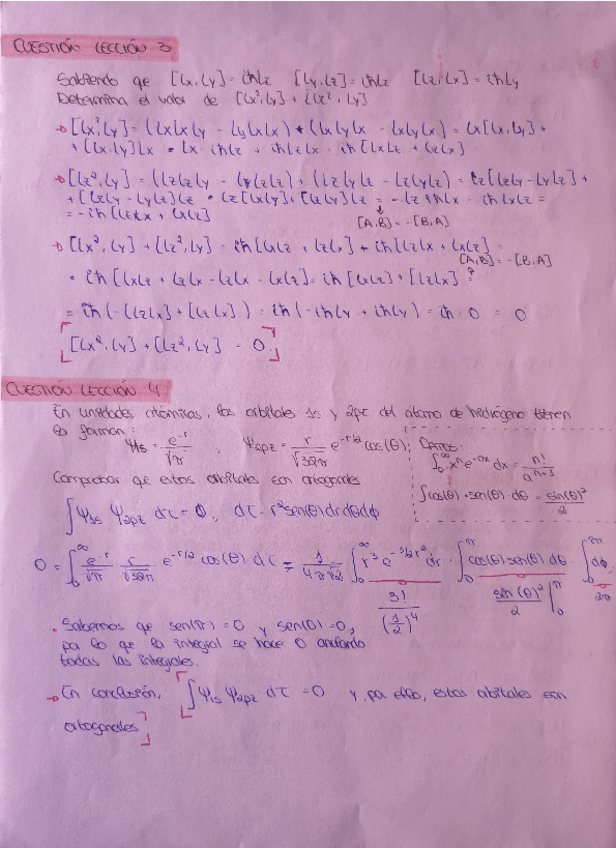 CUESTIÓN LECCIÓN 3
Sabiendo que [Lx,Ly]=iħLz [Ly,Lz]=iħLx [Lz,Lx]=iħLy
Determina el valor de [Lx²,Ly]+[Lz²,Ly]
→ [Lx²,Ly]=(LxLxLy - LyLxLx) + (LxLyLx - LxLyLx) = Lx[Lx,Ly] +
+ [Lx,Ly]Lx = Lx·iħLz + iħLzLx = iħ[LxLz + LzLx]
→ [Lz²,Ly]=(LzLzLy - LyLzLz) + (LzLyLz - LzLyLz) = Lz[LzLy-LyLz] +
+ [LzLy - LyLz]Lz = Lz[LzLy] + [LzLy]Lz = -Lz iħLx - iħLxLz =
= -iħ[LzLx + LxLz] [A,B]=-[B,A]
→ [Lx²,Ly] + [Lz²,Ly] = iħ[LxLz + LzLx] - iħ[LzLx + LxLz] =
[A,B]=-[B,A]
= iħ[LxLz + LzLx - LzLx - LxLz] = iħ[LxLz]+[LzLx] =
= iħ(-[LzLx]+[LzLx]) = iħ(-iħLy + iħLy) = iħ·0 = 0
[Lx²,Ly] + [Lz²,Ly] = 0
CUESTIÓN LECCIÓN 4
En unidades atómicas, los orbitales 1s y 2pz del átomo de hidrógeno tienen
la forma:
Ψ1s = e^-r/√π , Ψ2pz = r/√32π e^-r/2 cos(θ); DATOS:
∫0^∞ x^n e^-ax dx = n!/a^n+1
Comprobar que estos orbitales son ortogonales
∫cos(θ)·sen(θ)·dθ = sin(θ)²/2
∫Ψ1s Ψ2pz dτ = 0, dτ = r²sen(θ)drdθdϕ
0 = ∫0^∞ e^-r/√π r/√32π e^-r/2 cos(θ) dτ = 1/4π√2 ∫0^∞ r³e^-3/2r dr · ∫0^π cos(θ)sen(θ)dθ · ∫0 dϕ
3!/(1/2)^4 sin(θ)²/2 |0^π 2π
· Sabemos que sen(π)=0 y sen(0)=0,
por lo que la integral se hace 0 anulando
todas las integrales.
→ En conclusión, ∫Ψ1s Ψ2pz dτ = 0 y, por ello, estos orbitales son
ortogonales